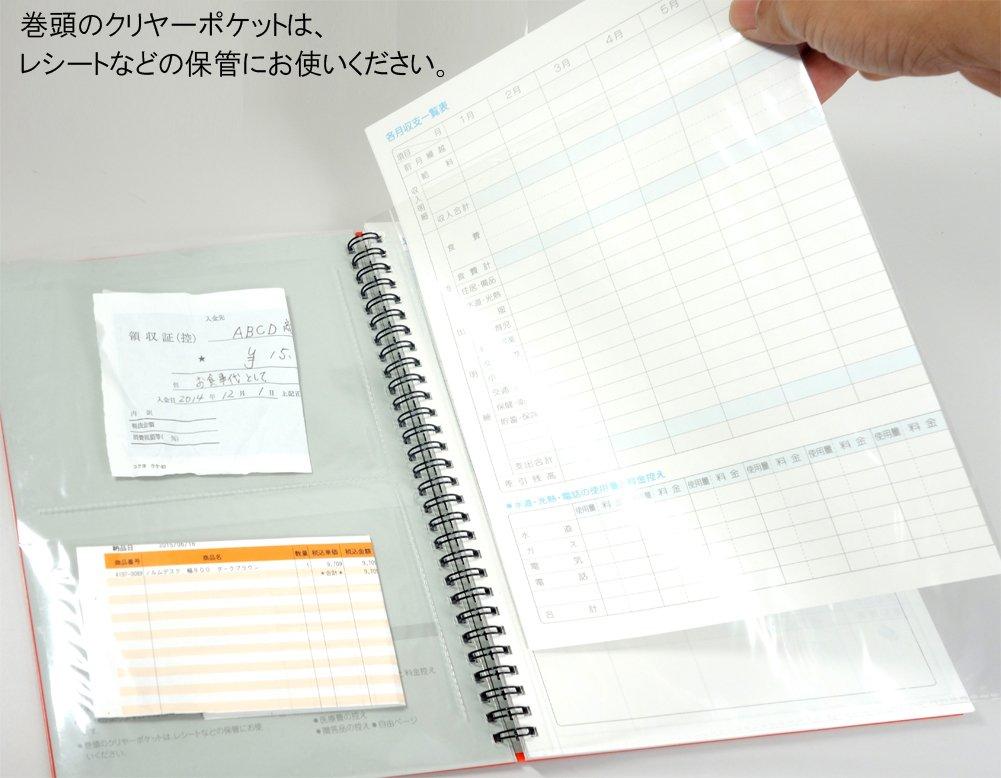 巻頭のクリヤーポケットは、
レシートなどの保管にお使いください。
各月収支一覧表
項目 月 1月 2月 3月 4月 5月
前月繰越
給料
収入明細
収入合計
食費
食費計
住居・備品
水道・光熱
交通
保健・衛
貯蓄・保険
支出合計
差引残高
■水道・光熱・電話の使用量 料金控え
使用量 料金 使用量 料金 使用量 料金 使用量 料金 使用量 料金
水道
ガス
電気
電話
合計
入金先
領収証(控) ABCD
★ ¥15.
但 お食事代として
入金日 2014年12月1日 上記正
内訳
税抜金額
消費税額等( %)
納品日 2015/06/16
商品番号 商品名 数量 税込単価 税込金額
ノルムデスク 幅900 ダークブラウン 1 9,709 9,709
*合計*
と料金控え
●医療費の控え
●贈答品の控え ●自由ページ
す。
●巻頭のクリヤーポケットは、レシートなどの保管にお使
いください。